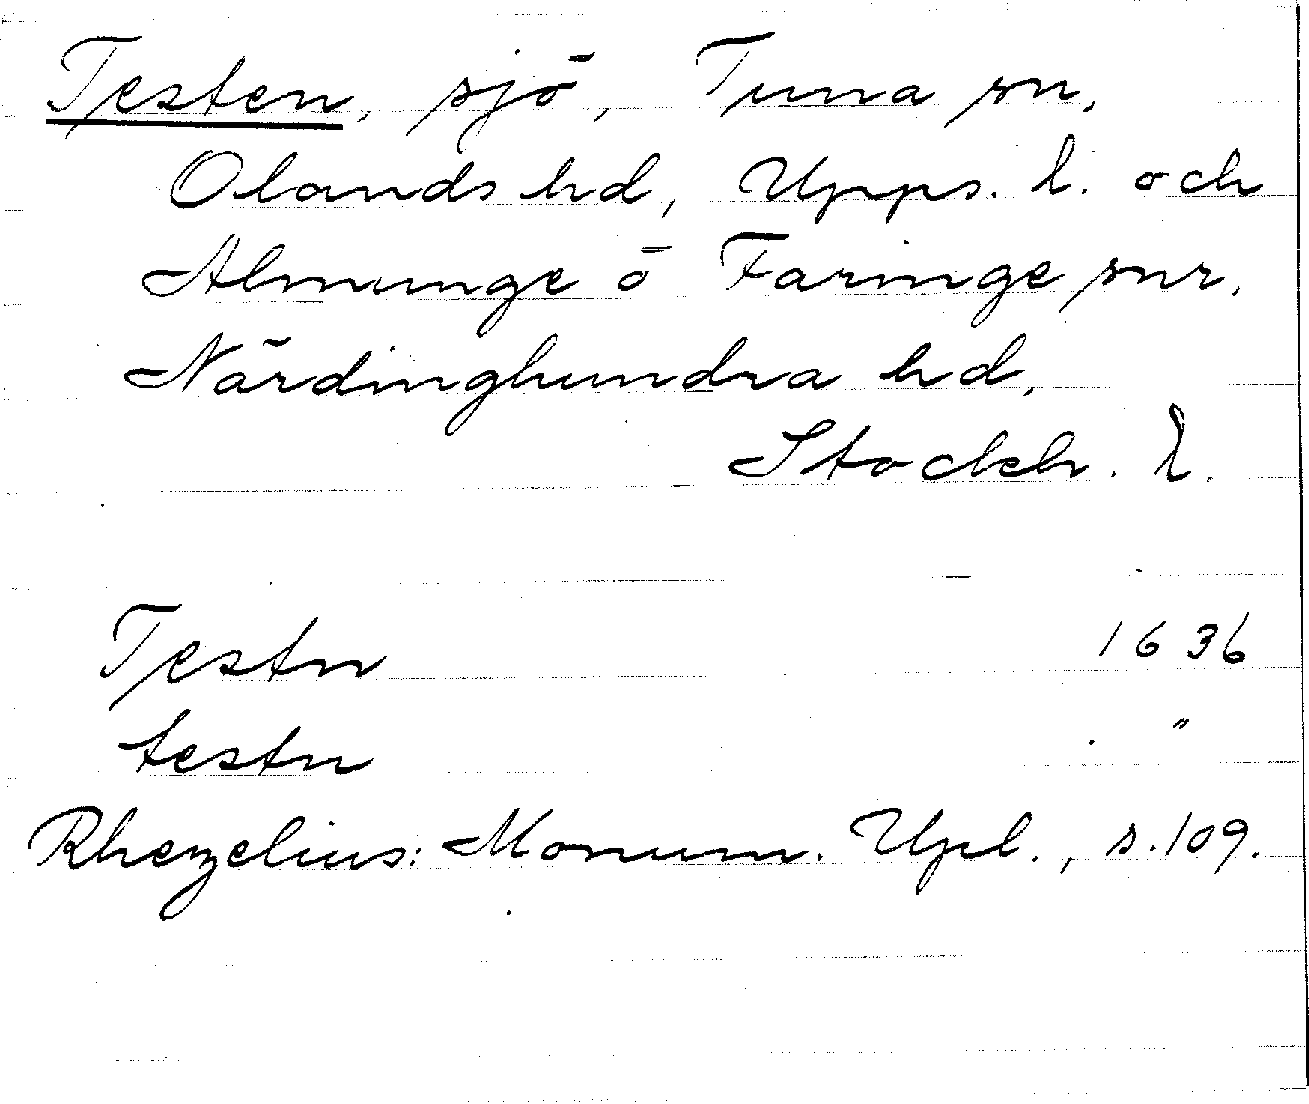 Testen, sjö, Tuna sn,
Olands hd, Upps. l. och
Almunge o Faringe snr,
Närdinghundra hd,
Stockh. l.
Testn 1636
testn "
Rhezelius: Monum. Upl., s. 109.